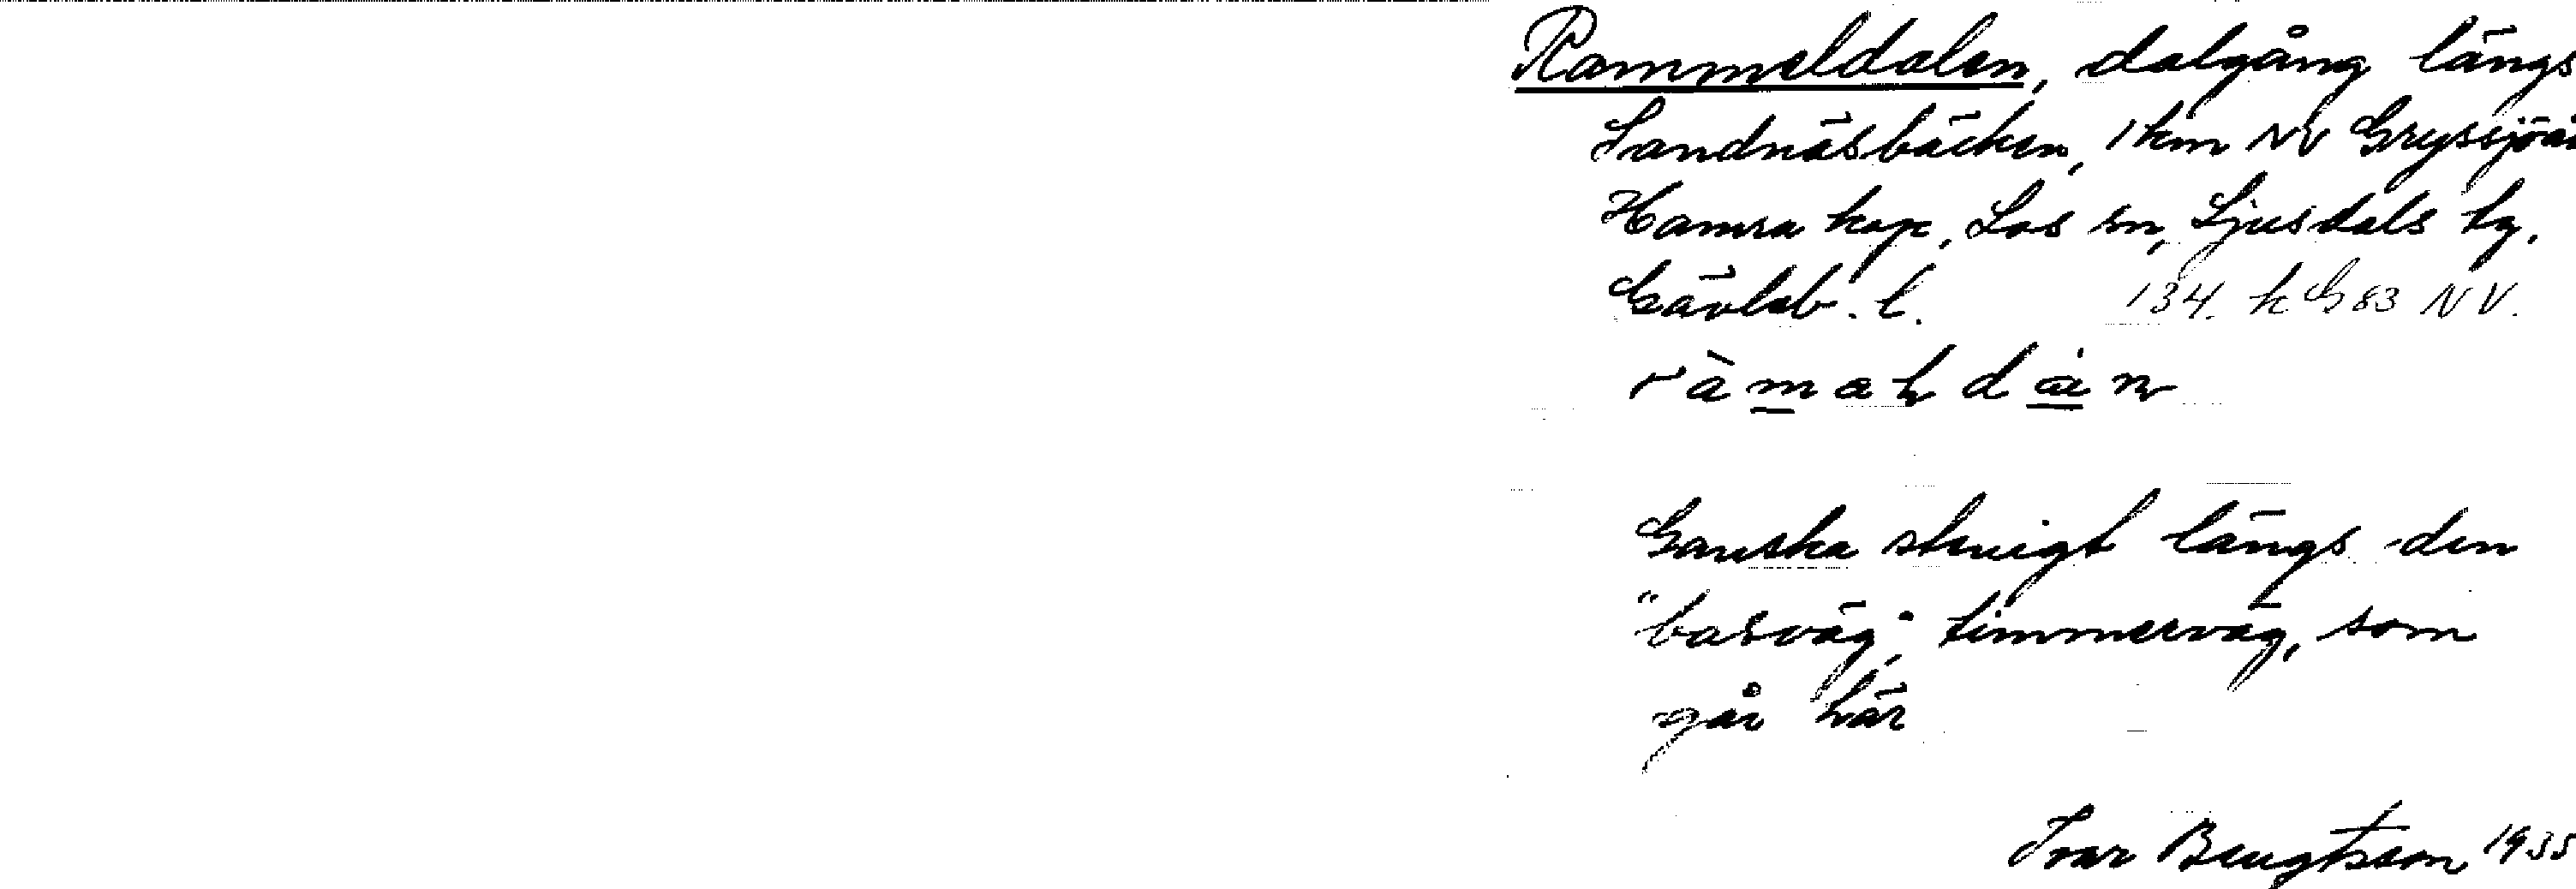 Rammeldalen, dalgång längs
Sandnäsbäcken, 1 km NV Gryssjön
Hamra kap, Los sn, Ljusdals tg.
Gävleb. l. 134. k G 83 NV.
Ganska stenigt längs den
"basväg", timmerväg, som
går här
Ivar Bengtsson 1935